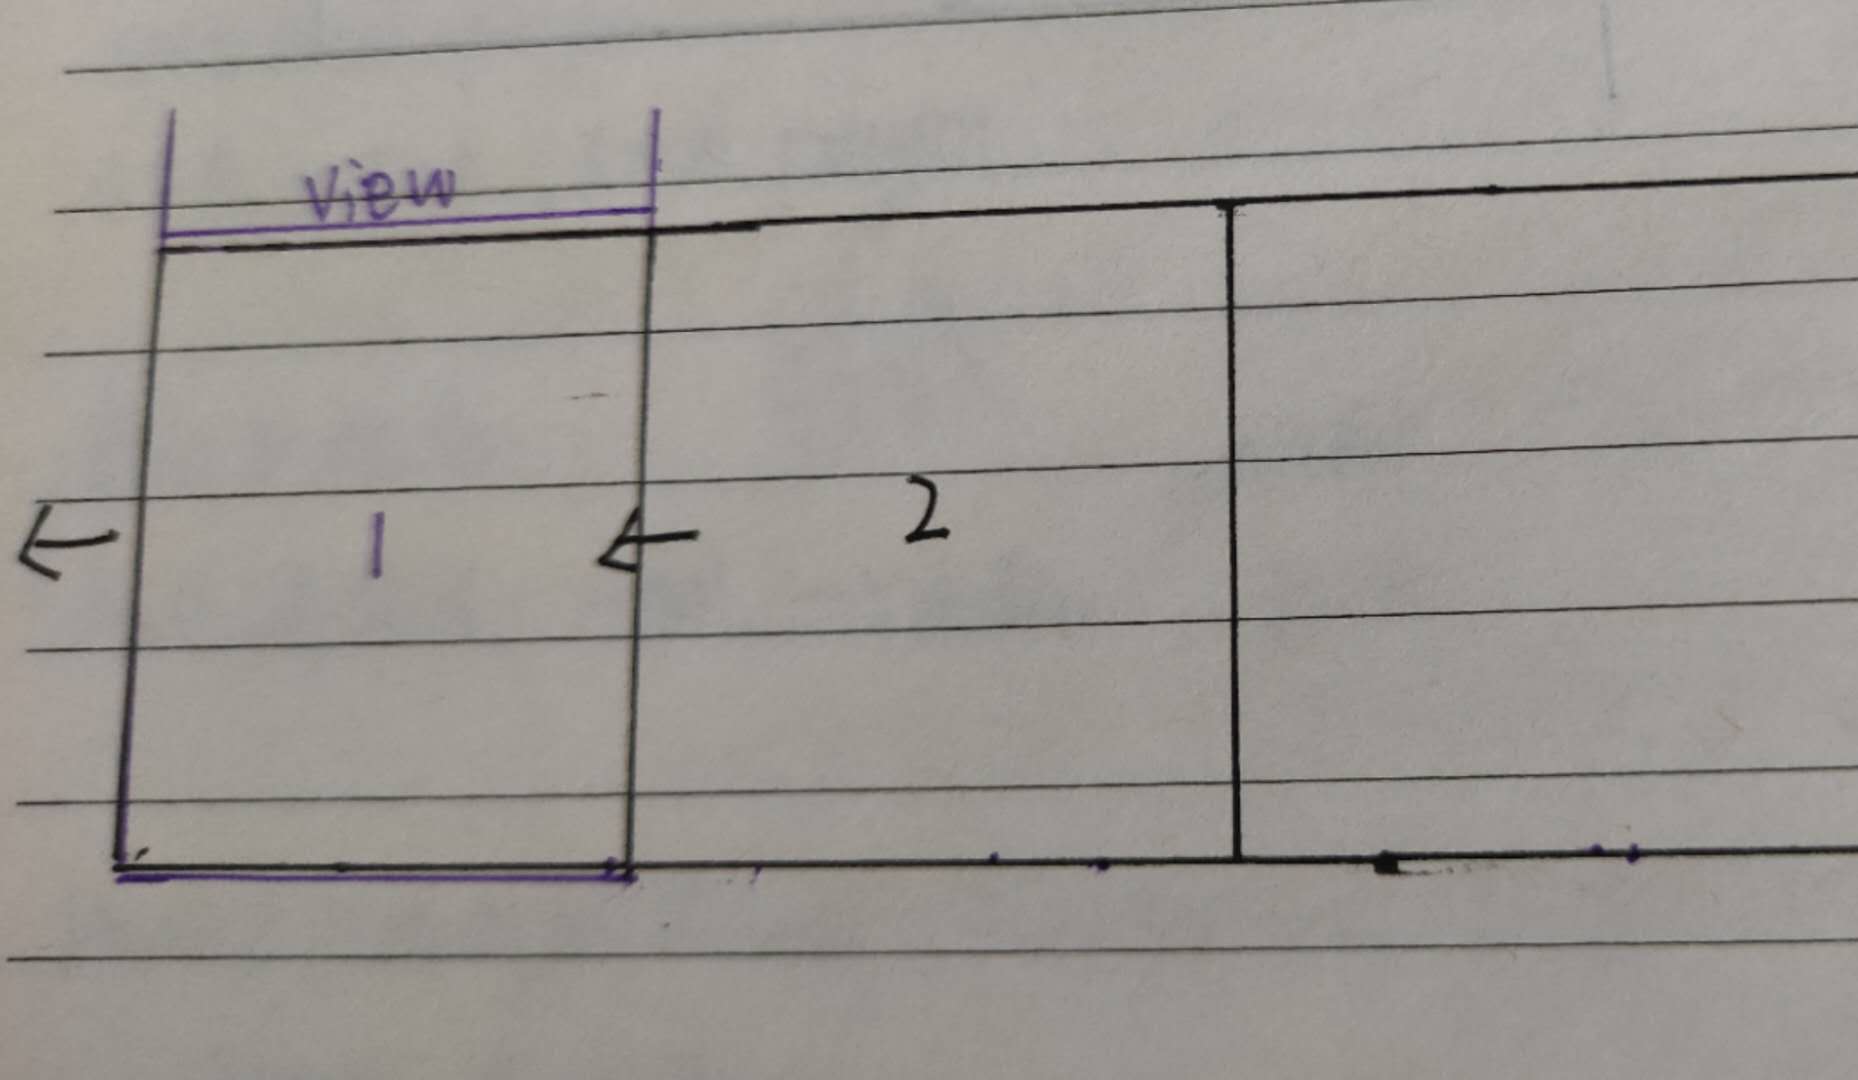 View
← 1 ← 2